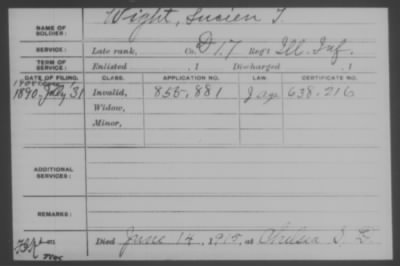 NAME OF SOLDIER: Wight, Lucien T.
SERVICE: Late rank, Co. D 17 Reg't Ill. Inf.
TERM OF SERVICE: Enlisted , 1 Discharged , 1
DATE OF FILING. CLASS. APPLICATION NO. LAW. CERTIFICATE NO.
1890 July 31 Invalid, 855,881 638,216
Widow,
Minor,
ADDITIONAL SERVICES:
REMARKS:
Died June 14, 1915, at Chelsea